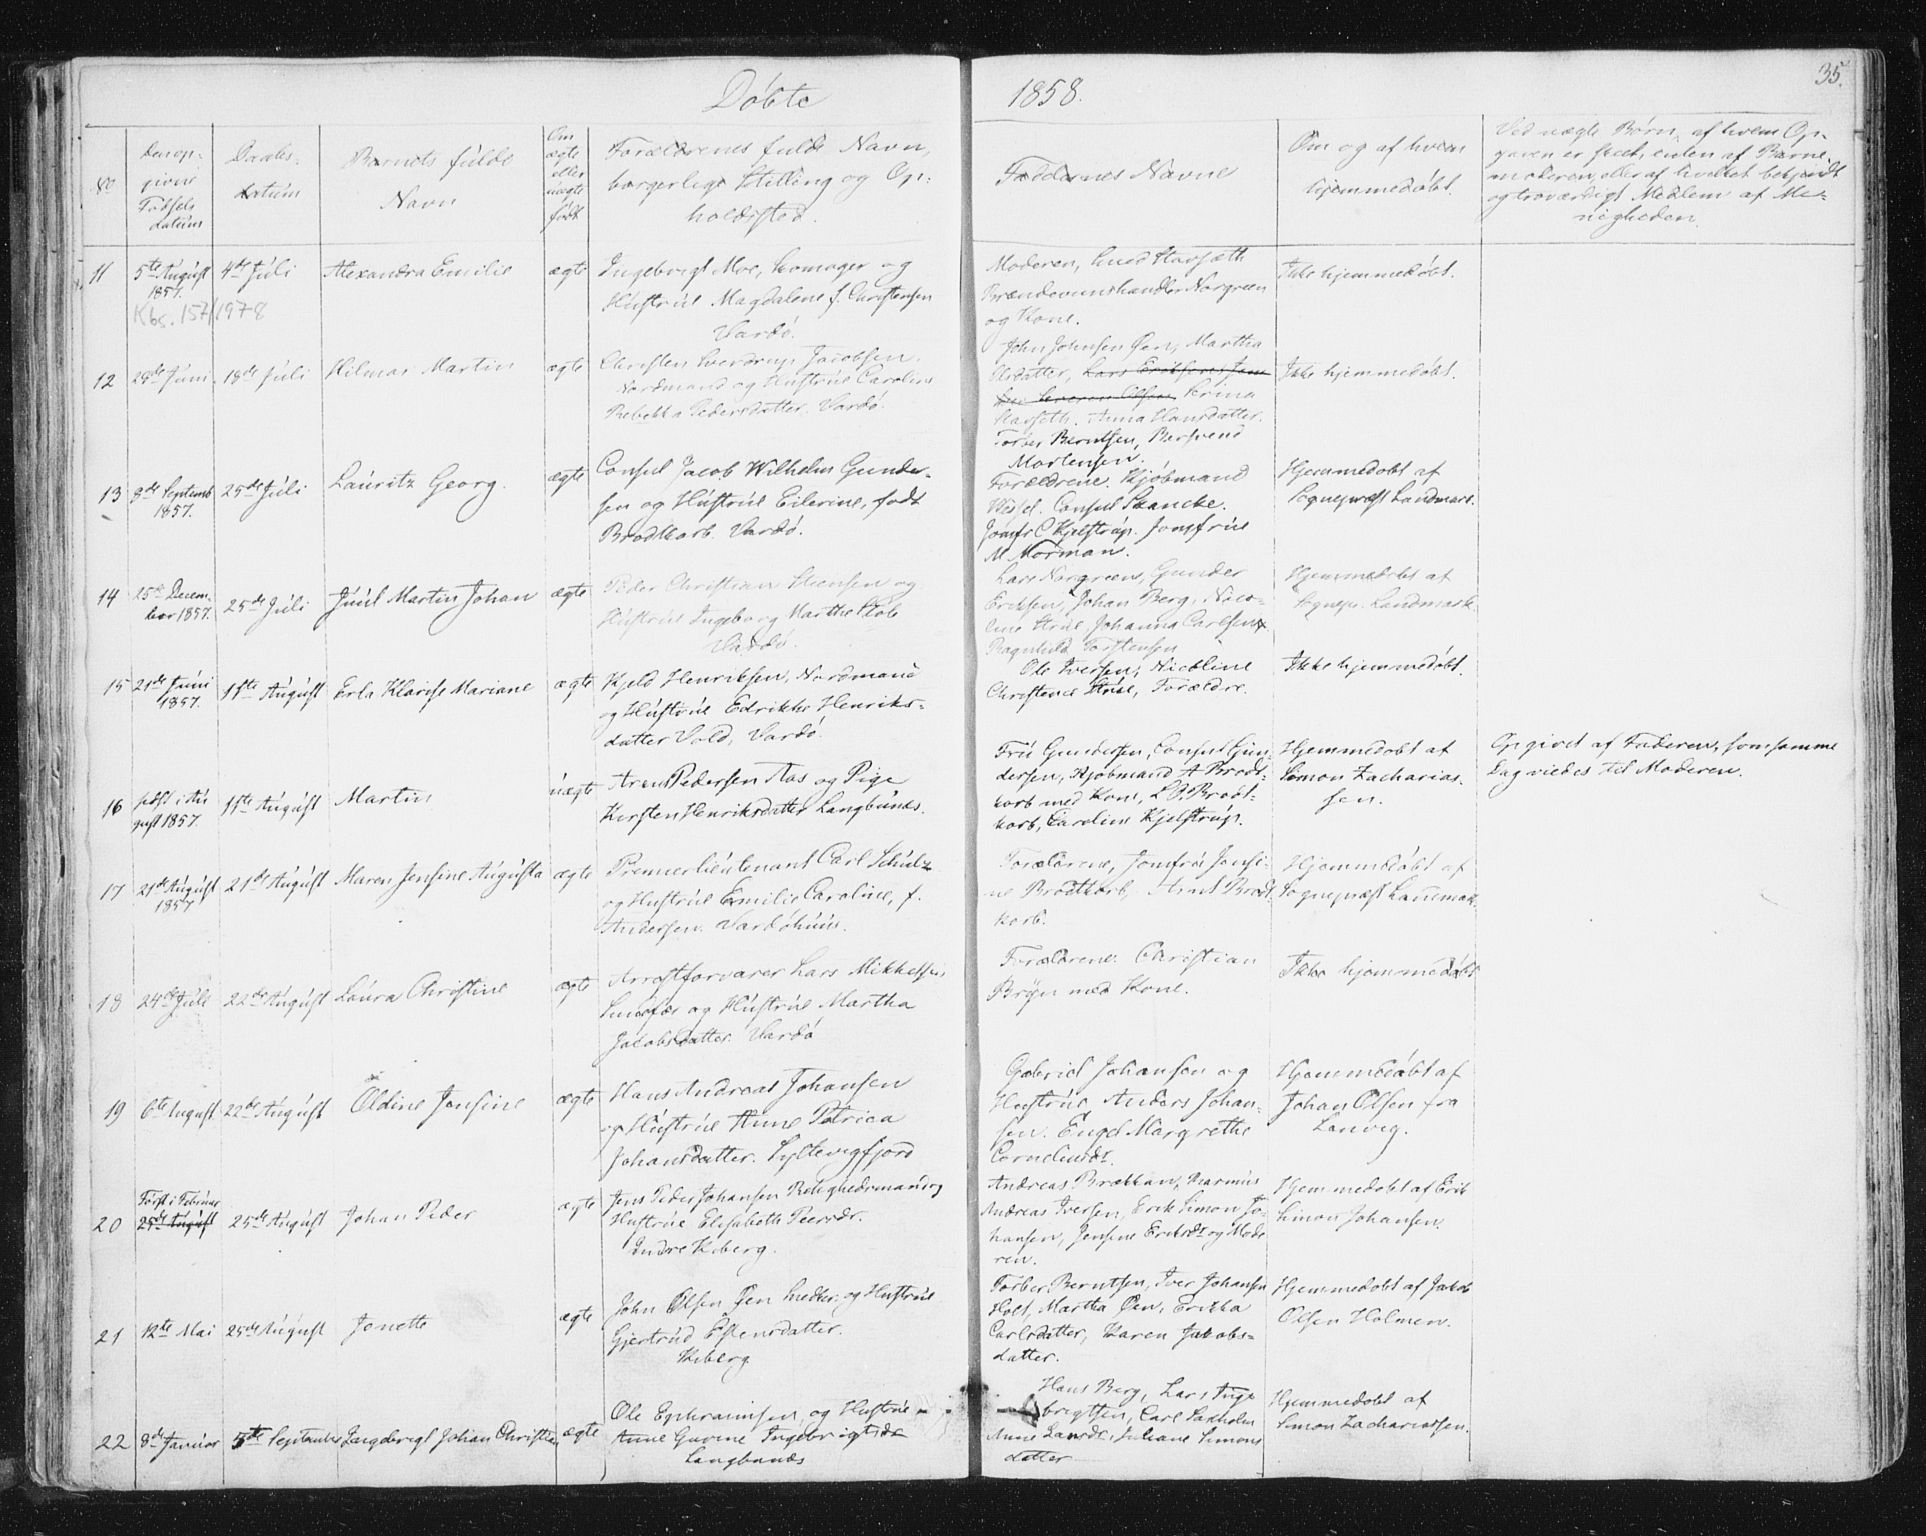 Döbte
1858.
35.
No
Den op-
givne
Fødsels
datum
Daabs-
datum
Barnets fulde
Navn
Om
ægte
eller
uægte
født
Forældrenes fulde Navn,
borgerlige Stilling og Op-
holdssted.
Faddernes Navne
Om og af hvem
hjemmedöbt.
Ved uægte Börn, af hvem Op-
gaven er skeet, enten af Barne-
moderen, eller af hvilket bekjendt
og troværdigt Medlem af Me-
nigheden.
11
5te August
1857.
Kbs. 157/1978
4de Juli
Alexandra Emilie
ægte
Ingebrigt Moe, Komager og
Hustrue Magdalene f. Christensen
Vardö.
Moderen,
Brændeviinshandler Norgreen
og Kone.
Ikke hjemmedöbt.
12
29de Juni
18de Juli
Hilmar Martin
ægte
Christen Sverdrup Jacobsen
Nordmand og Hustrue Caroline
Rebekka Pedersdatter. Vardö.
John Johnsen Öen, Martha
Olsdatter, Lars Eriksens
Severen Olsen, Krina
Starseth. Anna Hansdatter.
Torber Berntsen, Bersvend
Mortensen.
Ikke hjemmedöbt.
13
9de Septemb
1857.
25de Juli
Lauritz Georg.
ægte
Consul Jacob Wilhelm Gunder-
sen og Hustrue Eilerine, født
Brodtkorb. Vardö.
Forældrene. Kjöbmand
Wessel. Consul Skancke.
Jomfr C Kjelstrup. Jomfrue
M Norman.
Hjemmedöbt af
Sognepræst Landmark.
14
25de Decem-
ber 1857.
25de Juli
Juul Martin Johan
ægte
Peder Christian Steensen og
Hustrue Ingeborg Marthe Kolb
Vardö.
Lars Norgreen, Gunder
Eriksen, Johan Berg, Nico-
line Krue, Johanna Carlsen.
Ragnhild Torstensen
Hjemmedöbt af
Sognepr. Landmark.
15
21de Juni
1857.
15te August
Erla Klarise Mariane
ægte
Kjeld Henriksen, Nordmand
og Hustrue Edrikke Henriks-
datter Vold, Vardö.
Ole Iversen, Nicoline
Christence Krue, Forældre.
Ikke hjemmedöbt.
16
født i Au
gust 1857.
15te August
Martin
uægte
Arent Pedersen Aas og Pige
Kirsten Henriksdatter Langbunes.
Frü Gundersen, Consul Gun-
dersen, Kjöbmand A Brodt-
korb med Kone, L. J. Brodt-
korb, Caroline Kjelstrup.
Hjemmedöbt af
Simon Zacharias-
sen.
Opgivet af Faderen, som samme
Dag viedes til Moderen.
17
21de August
1857
21de August
Maren Jensine Augusta
ægte
Premierlieutenant Carl Schulz
og Hustrue Emilie Caroline, f.
Andersen. Vardöhuus.
Forældrene, Jomfru Jensi-
ne Brodtkorb, Arnt Brodt
korb.
Hjemmedöbt af
Sognepræst Landmark.
18
24de Juli
22de August
Laura Christine
ægte
Arrestforvarer Lars Mikkelsen
og Hustrue Martha
Jacobsdatter. Vardö
Forældrene. Christian
Bröjn med Kone.
Ikke hjemmedöbt
19
6te August
22de August
Oldine Jensine
ægte
Hans Andreas Johansen
og Hustrue Anne Petrica
Johansdatter. Syltevigfjord
Gabriel Johansen og
Hustrue Anders Johan-
sen. Engel Margrethe
Corneliusdr.
Hjemmedöbt af
Johan Olsen fra
Sandvig.
20
Først i Februar
25de August
25de August
Johan Peder
ægte
Jens Peder Johansen Leilighedsmand og
Hustrue Elisabeth Peersdr.
Indre Kiberg.
Andreas Brækkan, Rasmus
Andreas Iversen, Erik Simon Jo-
hansen, Jensine Eriksdr og Mode
ren.
Hjemmedöbt af Erik
Simon Johansen.
21
12te Mai
25de August
Jonette
ægte
John Olsen Öen Snedker og Hustrue
Gjertrud Estensdatter.
Kiberg
Torber Berntsen, Iver Johansen
Holt, Martha Öen, Erikka
Carlsdatter, Karen Jakobs-
datter.
Hjemmedöbt af Jakob
Olsen Holmen.
22
8de Januar
5te September
Ingebrigt Johan Christian
ægte
Ole Ephraimsen, og Hustrue
Anne Gurine Ingebrigtsdr
Langbunæs
Hans Berg, Lars Inge
brigtsen, Carl Saxholm
Anne Larsdr, Juliane Simons
datter
Hjemmedöbt af
Simon Zachariassen.